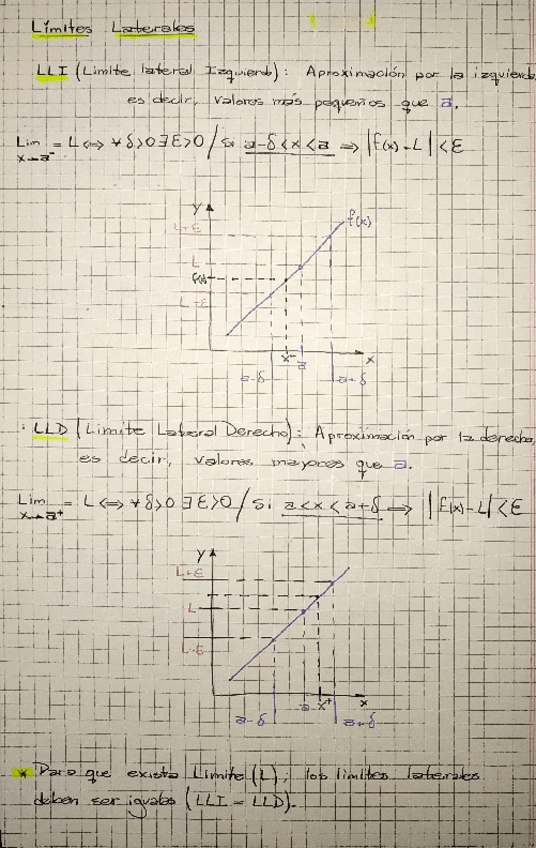 Límites Laterales
LLI (Limite lateral Izquierdo): Aproximación por la izquierda
es decir, valores más pequeños que a.
Lim = L ⟺ ∀ δ>0 ∃ ε>0 / si a-δ<x<a ⟹ |f(x)-L|<ε
x→a⁻
y
L+ε
f(x)
L
f(x)
L+ε
x⁻
a
x
a-δ
a+δ
LLD (Limite Lateral Derecho): Aproximación por la derecha,
es decir, valores mayores que a.
Lim = L ⟺ ∀ δ>0 ∃ ε>0 / Si a<x<a+δ ⟹ |f(x)-L|<ε
x→a⁺
y
L+ε
L
L-ε
a x⁺ x
a-δ
a+δ
* Para que exista Limite (L); los limites laterales
deben ser iguales (LLI = LLD).